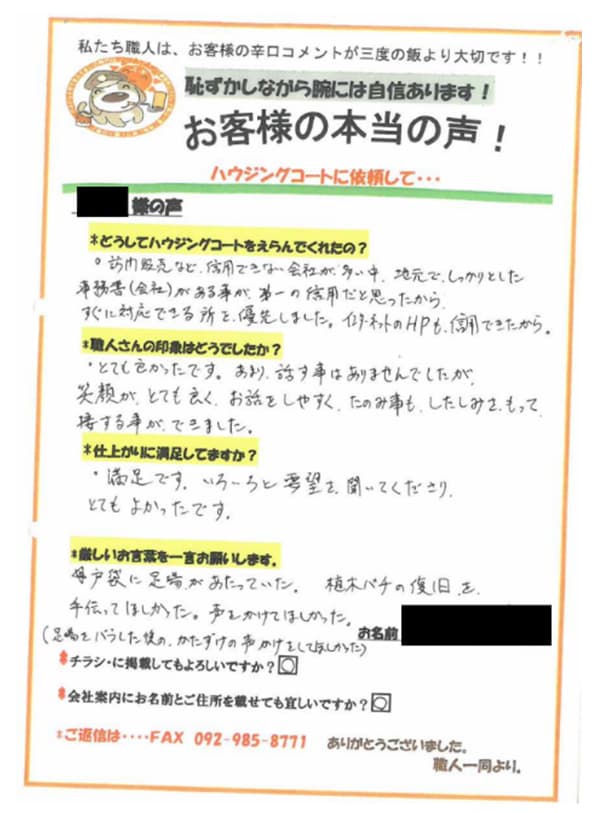 私たち職人は、お客様の辛口コメントが三度の飯より大切です！！
恥ずかしながら腕には自信あります！
お客様の本当の声！
ハウジングコートに依頼して・・・
様の声
*どうしてハウジングコートをえらんでくれたの？
。訪問販売など、信用できない会社が、多い中、地元で、しっかりとした
事務書（会社）がある事が、第一の信用だと思ったから
すぐに対応できる所を、優先しました。インターネットのHPも、信用できたから。
*職人さんの印象はどうでしたか？
・とても良かったです。あまり、話す事はありませんでしたが、
笑顔が、とても良く、お話をしやすく、たのみ事も、したしみを、もって、
接する事が、できました。
*仕上がりに満足してますか？
・満足です。いろいろと要望を、聞いてくださり、
とても よかったです。
*厳しいお言葉を一言お願いします。
戸袋に足場があたっていた。 植木バチの復旧を、
手伝ってほしかった。声をかけてほしかった。
お名前
（足場をバラした後の、かたずけの声かけをしてほしかった）
*チラシ・に掲載してもよろしいですか？○
*会社案内にお名前とご住所を載せても宜しいですか？○
*ご返信は・・・・FAX 092-985-8771 ありがとうございました。
職人一同より。